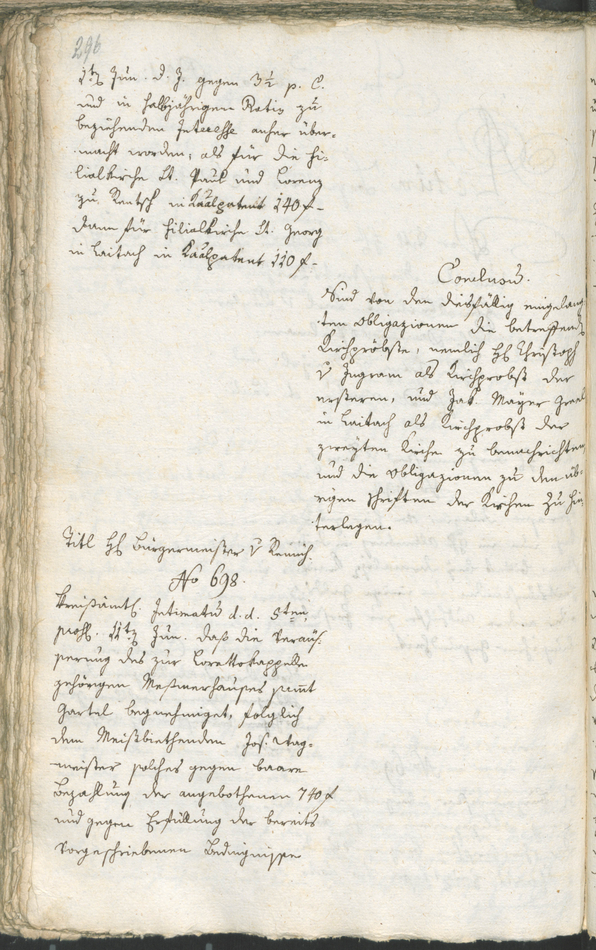 296
1tz Jun. d. J. gegen 3½ p. C.
und in halbjährigen Ratis zu
beziehenden Interesse anher über-
macht worden, als für die Fi-
lialkirche St. Paul und Lorenz
zu in Kaalpatent 240 f-
dann für Filialkirche St. Georg
in Laitach in Kaalpatent 110 f-
Conclusum.
Sind von den dießfällig eingelang-
ten Obligazionen die betreffende
Kirchpröbste, nemlich H Christoph
v Ingram als Kirchprobst der
ersteren, und Jak. Mayer
in Laitach als Kirchprobst der
zweyten Kirche zu benachrichten
und die Obligazionen zu den üb-
rigen Schriften der Kirchen zu hin-
terlegen.
Titl H Bürgermeister v
No 698.
Kreisämtl. Intimatum d. d. 5ten,
11tz Jun. daß die Veraüs-
serung des zur Lorettokappelle
gehörigen Meßmerhauses samt
Gartel begnehmiget, folglich
dem Meistbiethenden Jos.
meister solches gegen baare
Bezahlung der angebothenen 740 f
und gegen Erfüllung der bereits
vorgeschriebenen Bedingnisse